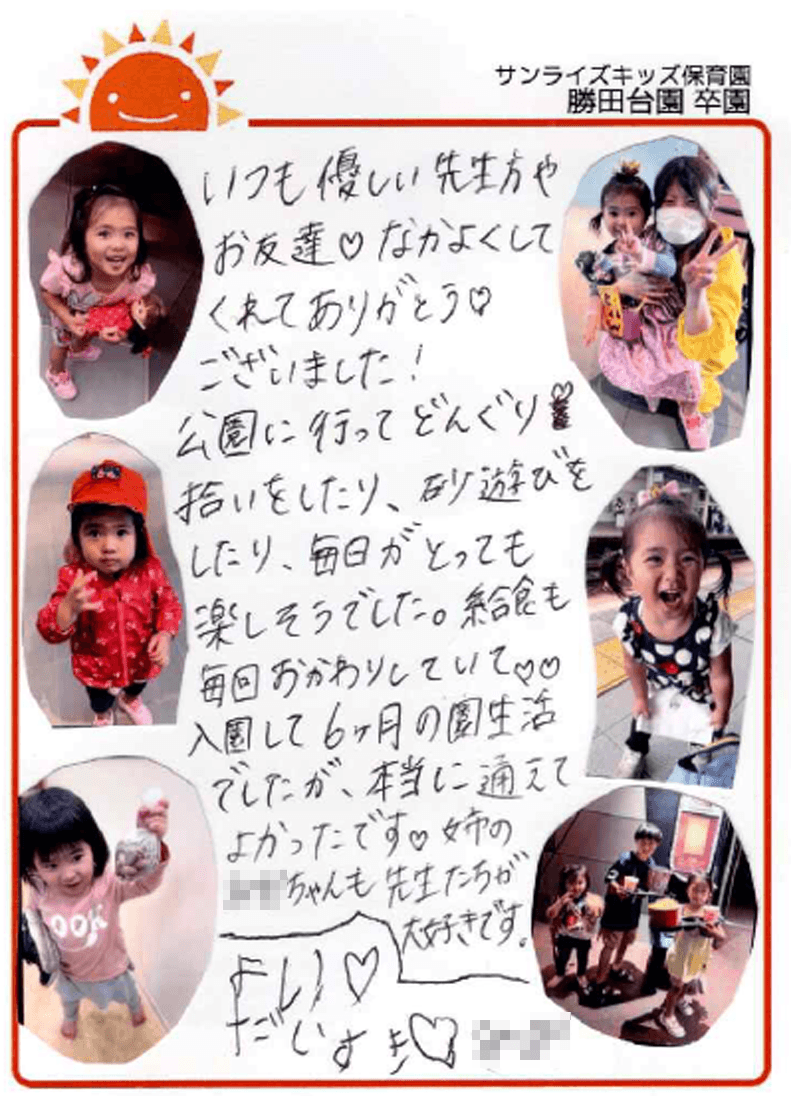 サンライズキッズ保育園
勝田台園 卒園
いつも優しい先生方や
お友達♡なかよくして
くれてありがとう♡
ございました!
公園に行ってどんぐり
拾いをしたり、砂遊びを
したり、毎日がとっても
楽しそうでした。給食も
毎回おかわりしていて♡♡
入園して6ヶ月の園生活
でしたが、本当に通えて
よかったです♡姉の
ちゃんも先生たちが
大好きです。
だいすき♡